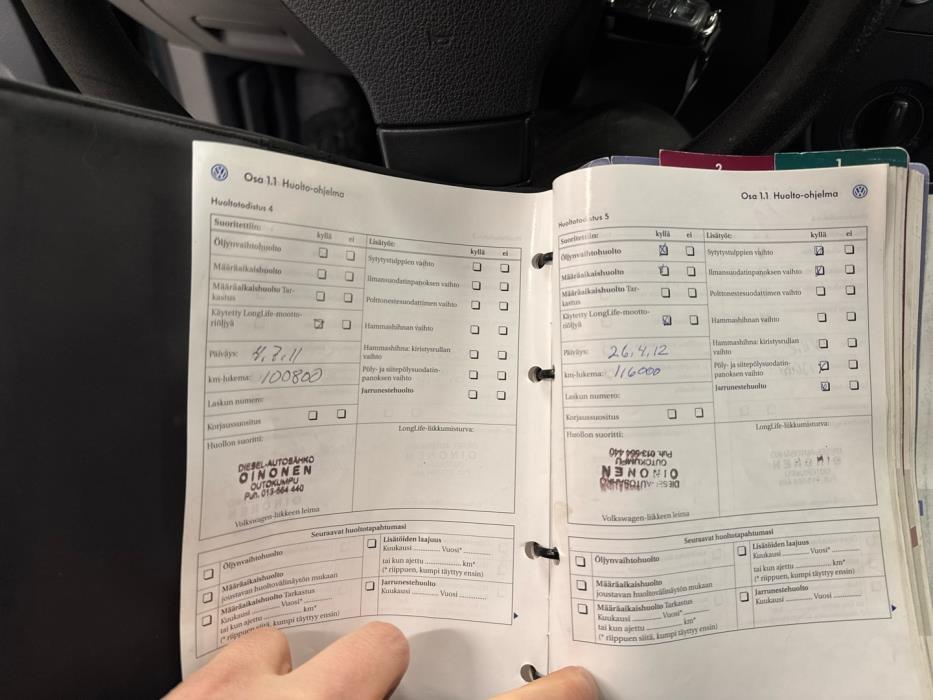 Osa 1.1 Huolto-ohjelma
Huoltotodistus 4
Suoritettiin: kyllä ei
Öljynvaihtohuolto
Määräaikaishuolto
Määräaikaishuolto Tar-
kastus
Käytetty LongLife-mootto-
riöljyä
Päiväys:
km-lukema: 100800
Laskun numero:
Korjaussuositus
Huollon suoritti:
DIESEL-AUTOSÄHKÖ
OINONEN
OUTOKUMPU
Puh. 013-564 440
Volkswagen-liikkeen leima
Lisätyöt: kyllä ei
Sytytystulppien vaihto
Ilmansuodatinpanoksen vaihto
Polttonestesuodattimen vaihto
Hammashihnan vaihto
Hammashihna: kiristysrullan
vaihto
Pöly- ja siitepölysuodatin-
panoksen vaihto
Jarrunestehuolto
LongLife-liikkumisturva:
Seuraavat huoltotapahtumasi
Öljynvaihtohuolto
Määräaikaishuolto
joustavan huoltovälinäytön mukaan
Määräaikaishuolto Tarkastus
Kuukausi ............ Vuosi* ............
tai kun ajettu ............ km*
(* riippuen siitä, kumpi täyttyy ensin)
Lisätöiden laajuus
Kuukausi ............ Vuosi* ............
tai kun ajettu ............ km*
(* riippuen, kumpi täyttyy ensin)
Jarrunestehuolto
Kuukausi ............ Vuosi ............
2
1
Osa 1.1 Huolto-ohjelma
Huoltotodistus 5
Suoritettiin: kyllä ei
Öljynvaihtohuolto
Määräaikaishuolto
Määräaikaishuolto Tar-
kastus
Käytetty LongLife-mootto-
riöljyä
Päiväys: 26,4,12
km-lukema: 116000
Laskun numero:
Korjaussuositus
Huollon suoritti:
DIESEL-AUTOSÄHKÖ
OINONEN
OUTOKUMPU
Puh. 013-564 440
Volkswagen-liikkeen leima
Lisätyöt: kyllä ei
Sytytystulppien vaihto
Ilmansuodatinpanoksen vaihto
Polttonestesuodattimen vaihto
Hammashihnan vaihto
Hammashihna: kiristysrullan
vaihto
Pöly- ja siitepölysuodatin-
panoksen vaihto
Jarrunestehuolto
LongLife-liikkumisturva:
Seuraavat huoltotapahtumasi
Öljynvaihtohuolto
Määräaikaishuolto
joustavan huoltovälinäytön mukaan
Määräaikaishuolto Tarkastus
Kuukausi ............ Vuosi* ............
tai kun ajettu ............ km*
(* riippuen siitä, kumpi täyttyy ensin)
Lisätöiden laajuus
Kuukausi ............ Vuosi* ............
tai kun ajettu ............ km*
(* riippuen, kumpi täyttyy ensin)
Jarrunestehuolto
Kuukausi ............ Vuosi ............